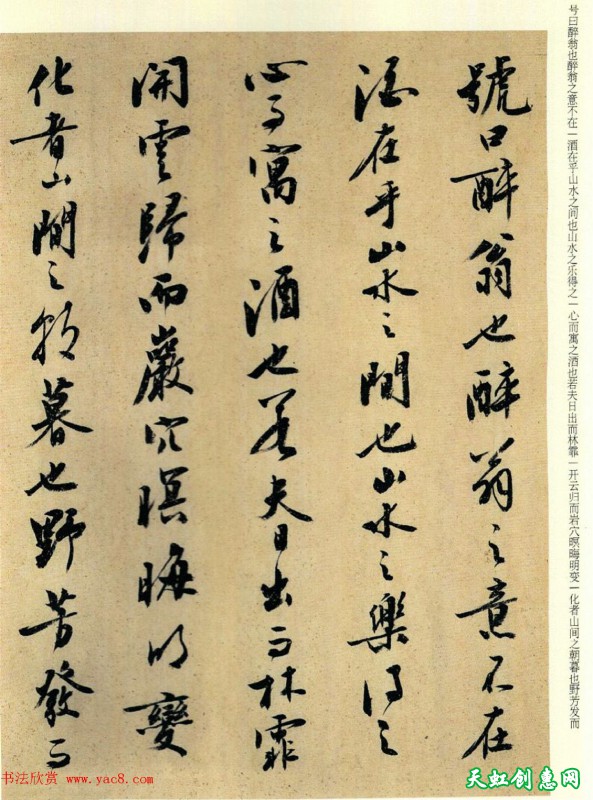 號曰醉翁也醉翁之意不在
酒在乎山水之間也山水之樂得之
心而寓之酒也若夫日出而林霏
開雲歸而巖穴暝晦明變
化者山間之朝暮也野芳發而
号曰醉翁也醉翁之意不在一酒在乎山水之间也山水之乐得之一心而寓之酒也若夫日出而林霏一开云归而岩穴暝晦明变一化者山间之朝暮也野芳发而
书法欣赏 www.yac8.com
天虹创惠网